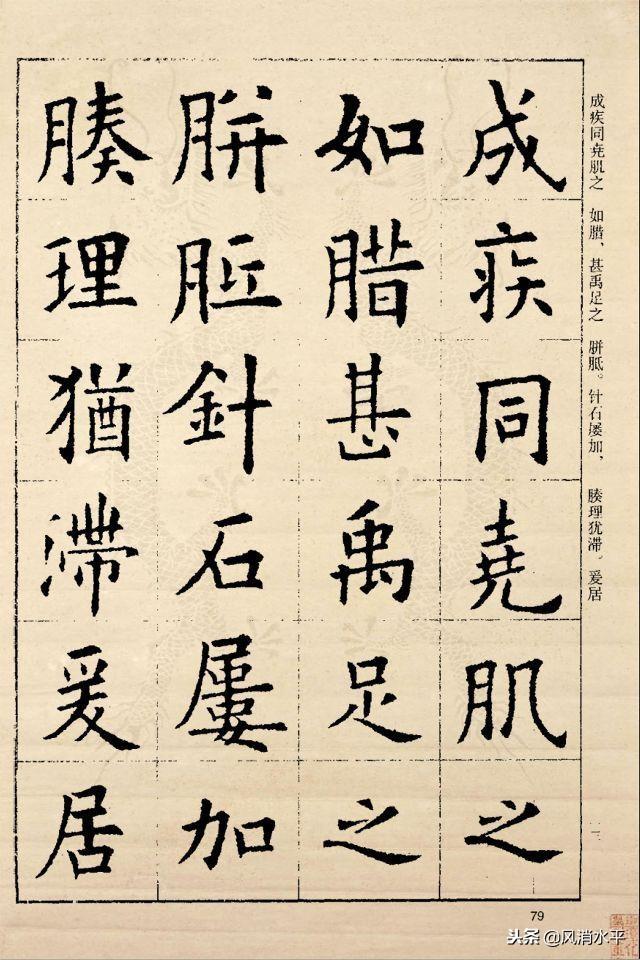 成疾同堯肌之
如腊甚禹足之
胼胝針石屢加
腠理猶滯爰居
成疾同尧肌之　如腊、甚禹足之　胼胝。针石屡加，　腠理犹滞。爰居
79
头条 @风消水平